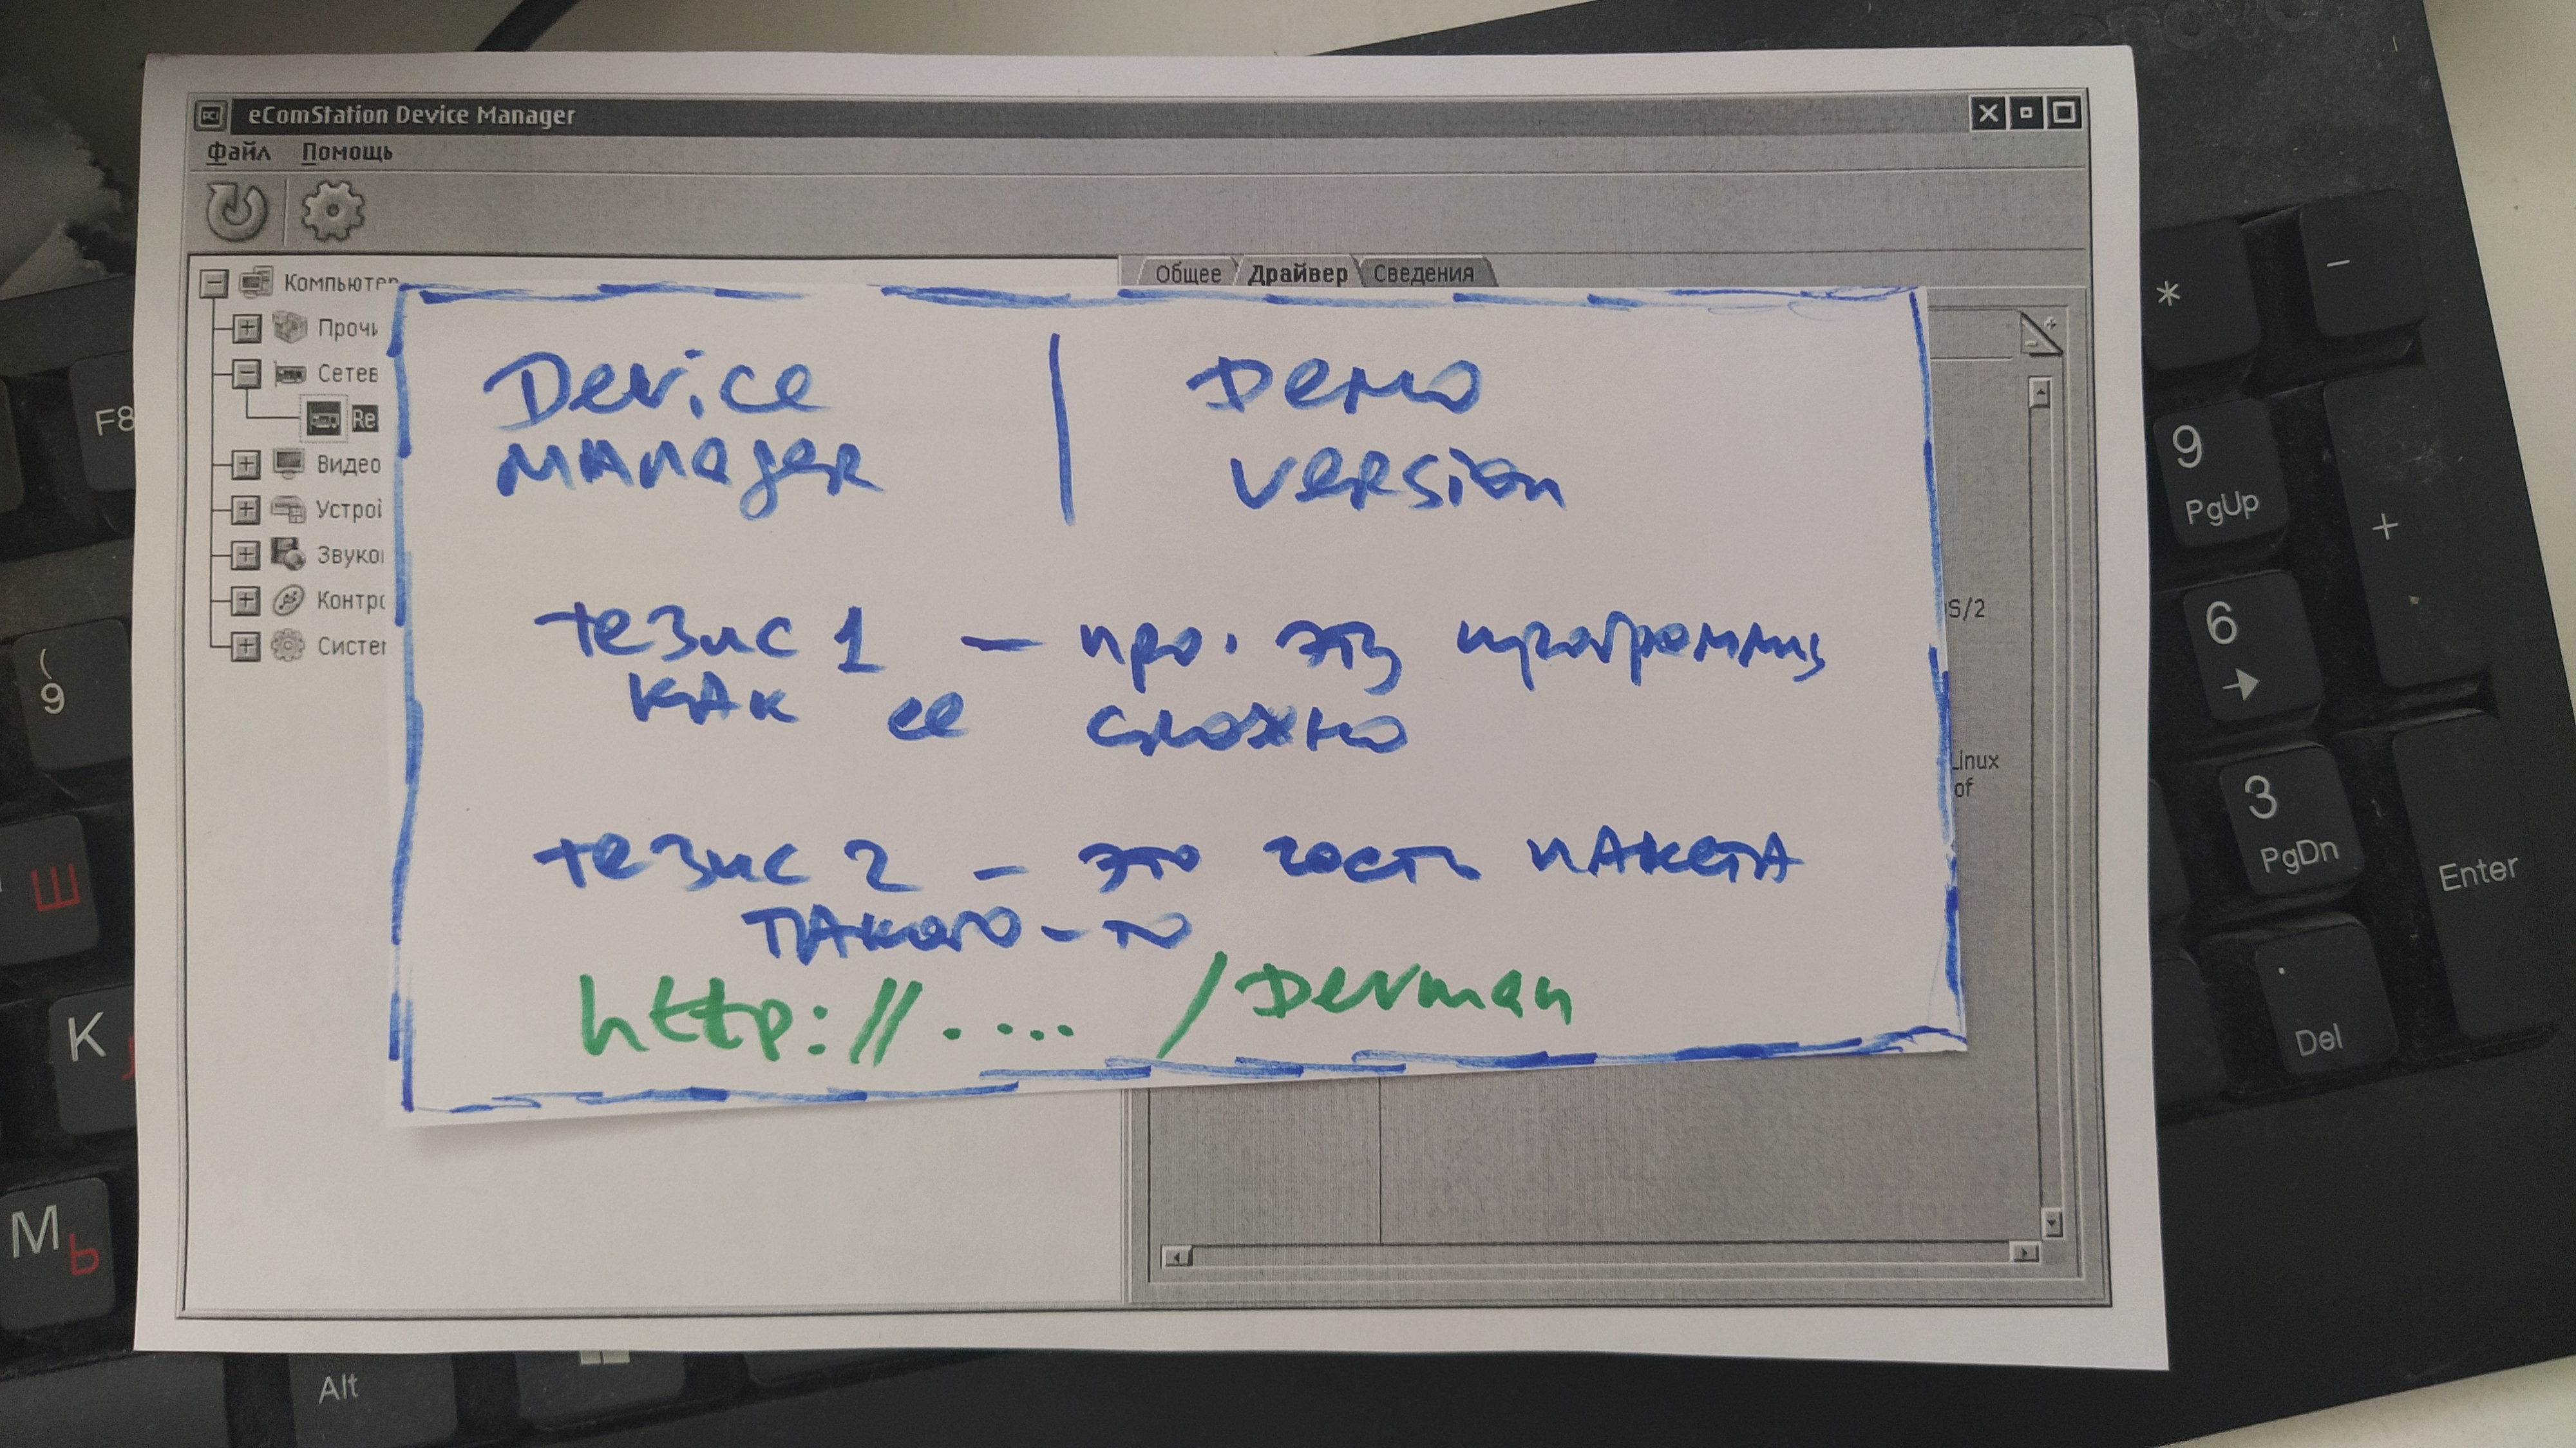 eComStation Device Manager
Файл Помощь
Общее Драйвер Сведения
Компьютер
Прочи
Сетев
Re
Видео
Устрой
Звуко
Контро
Систем
Device | Демо
manager | version
тезис 1 — про. эту программу
как ее сложно
тезис 2 — это часть пакета
такого-то
http://.... /Devman
S/2
Linux
of
F8
( 9
Ш
К
М Ь
Alt
* -
9 PgUp
+
6 →
3 PgDn
Enter
. Del
lenovo